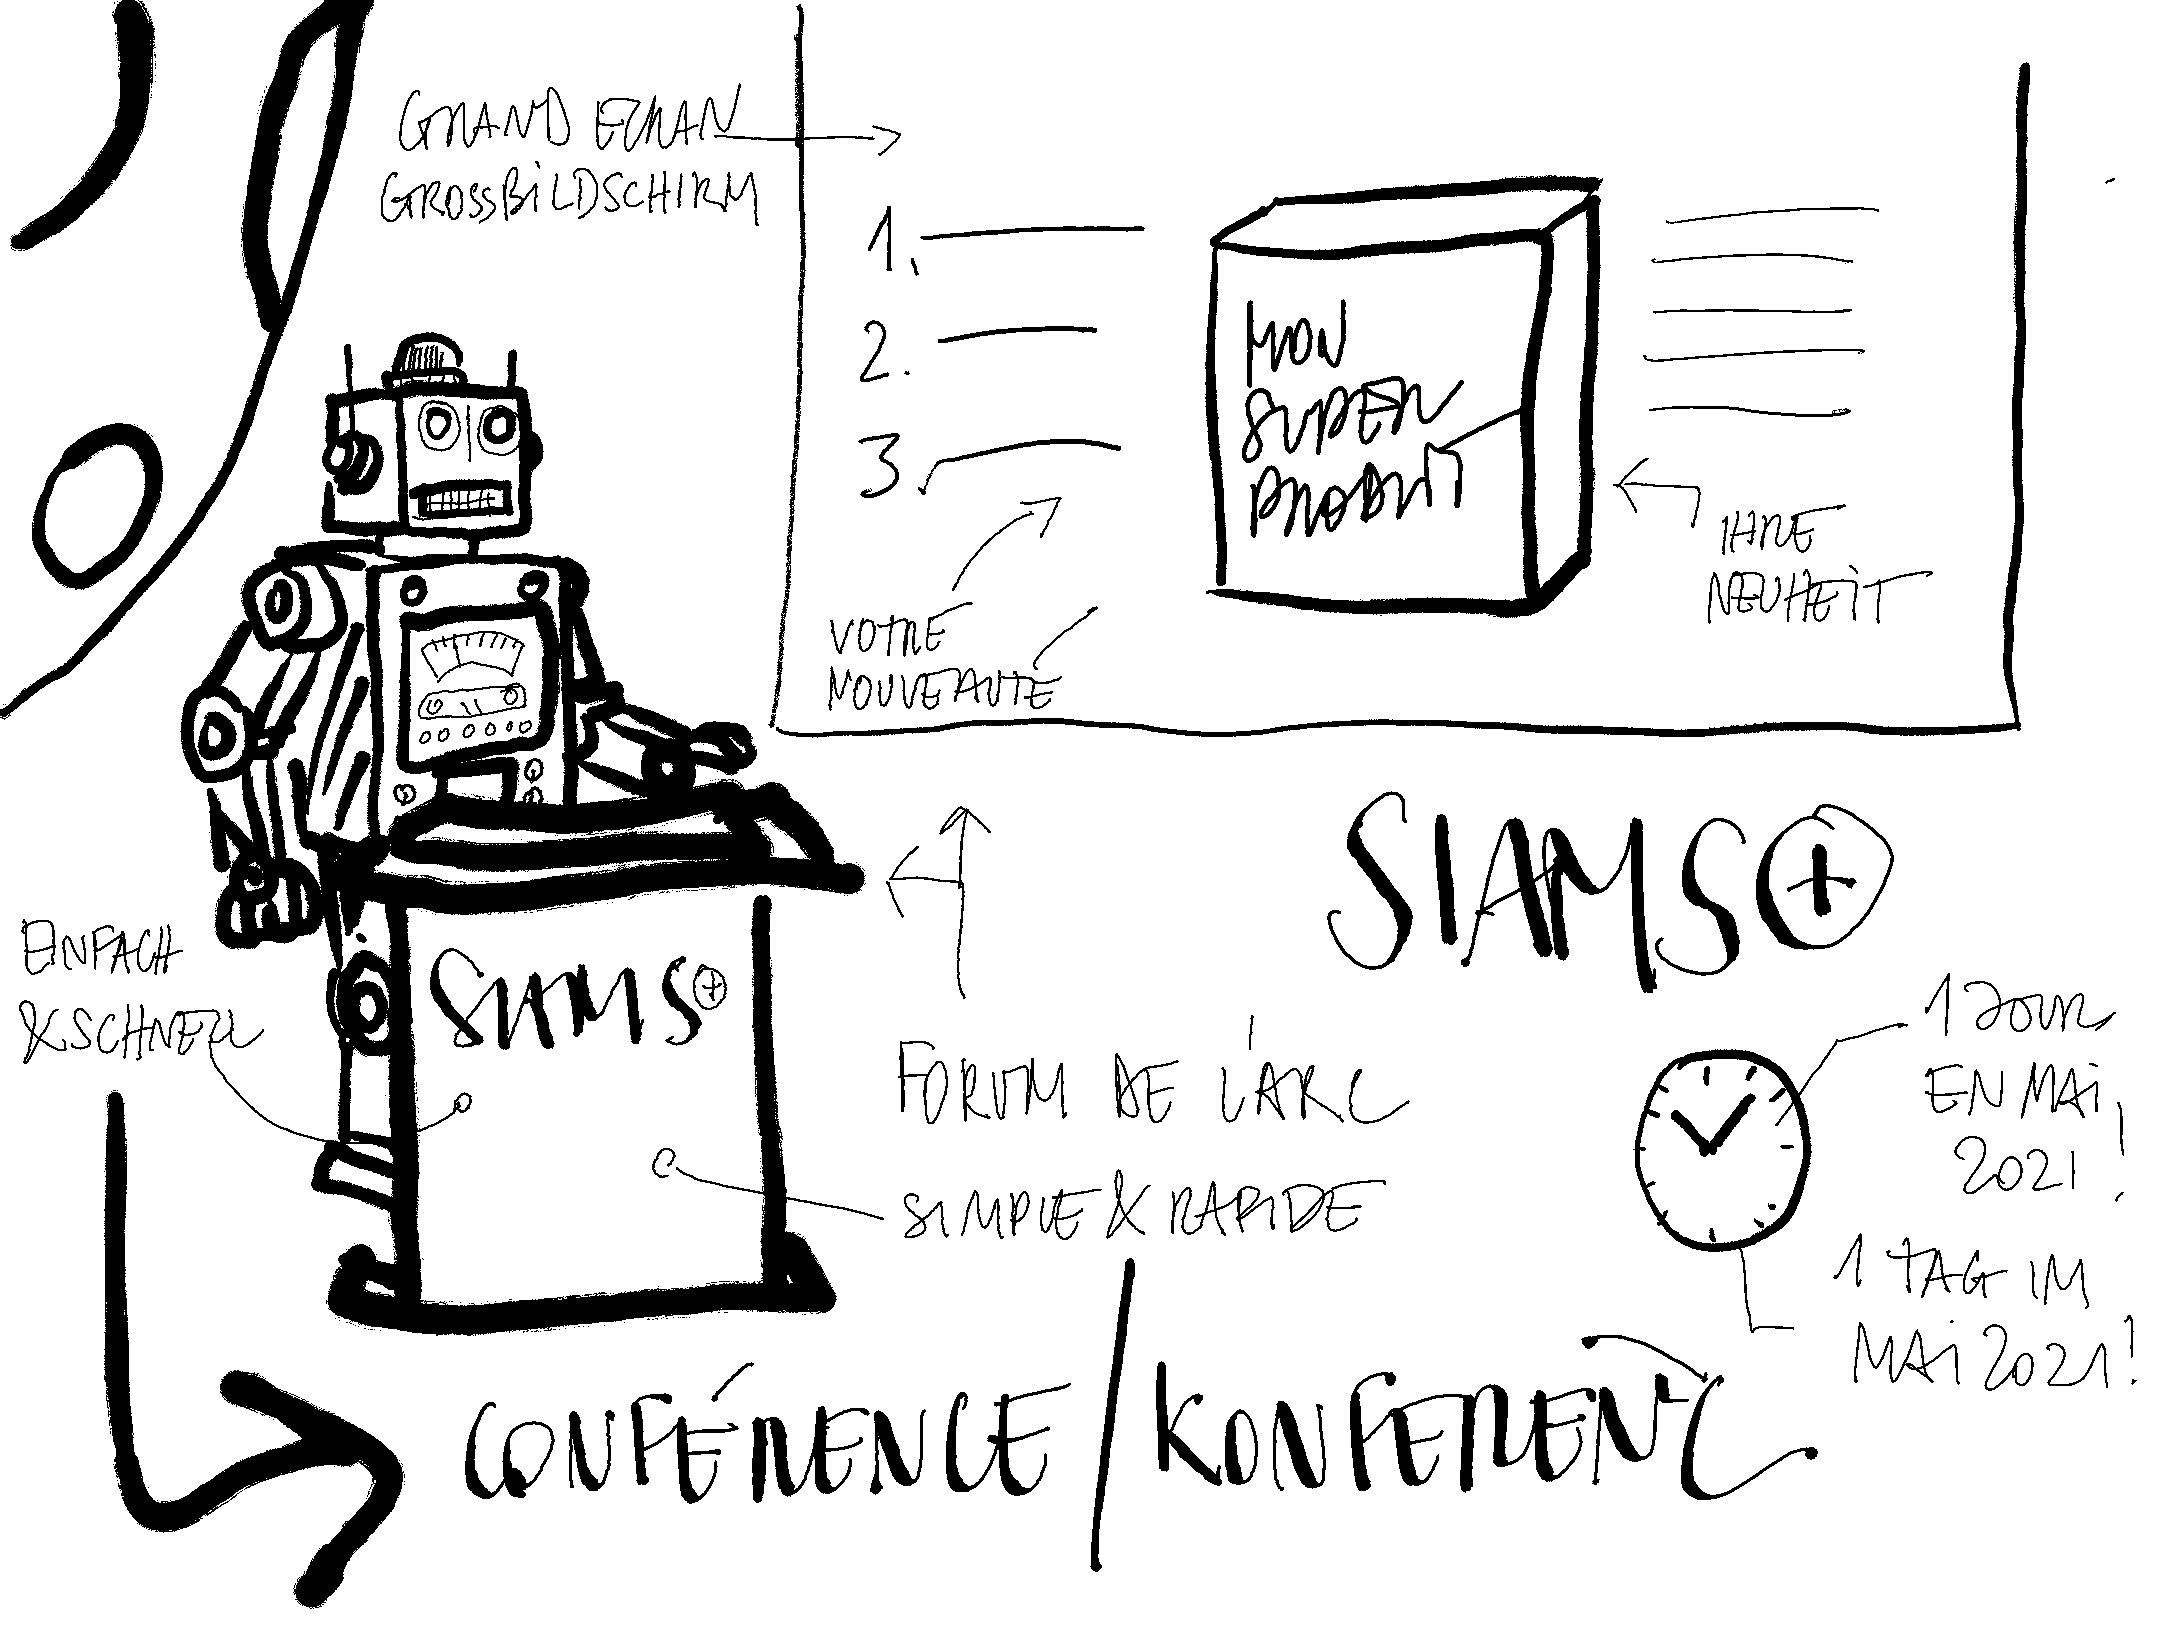 GRAND ECRAN
GROSSBILDSCHIRM
1.
2.
3.
MON
SUPER
PRODUIT
VOTRE
NOUVEAUTÉ
IHRE
NEUHEIT
SIAMS+
EINFACH
& SCHNELL
SIAMS+
FORUM DE L'ARC
SIMPLE & RAPIDE
1 JOUR
EN MAI
2021!
1 TAG IM
MAI 2021!
CONFÉRENCE / KONFERENZ